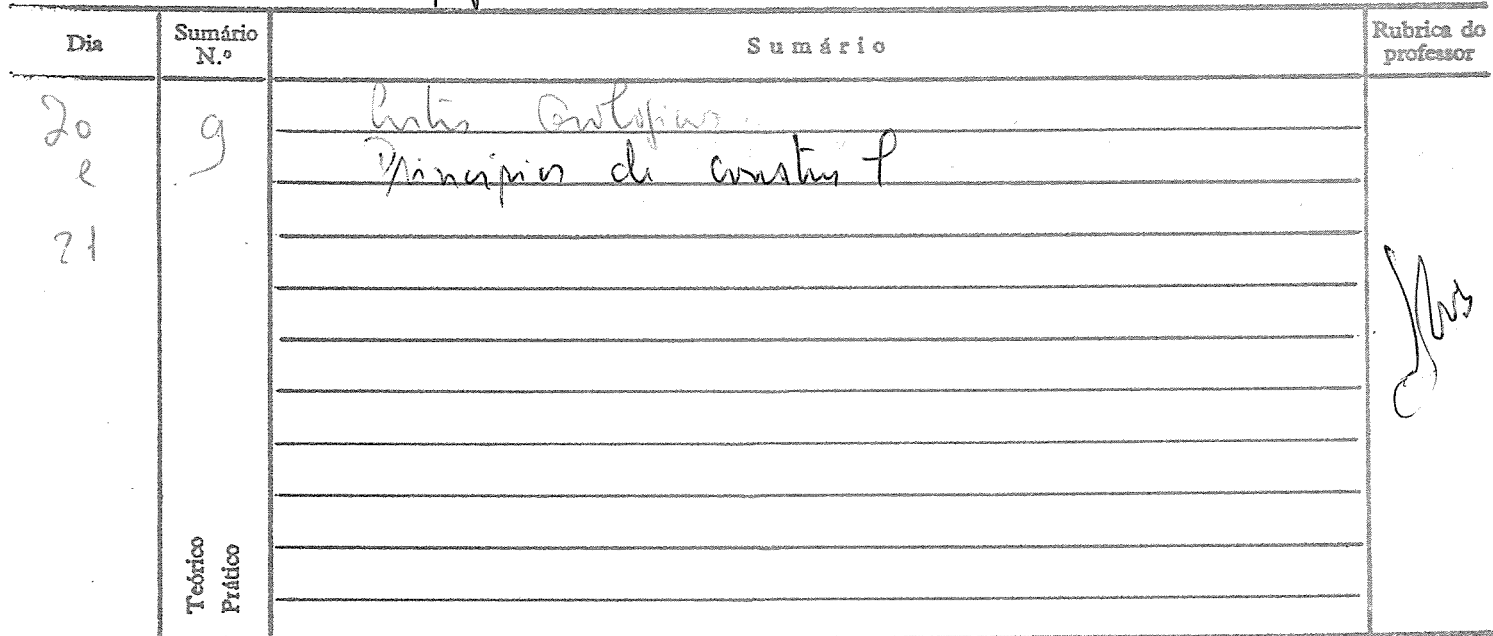 Dia
Sumário N.º
Sumário
Rubrica do professor
20
e
21
9
Geológicas
Princípios de
Teórico
Prático